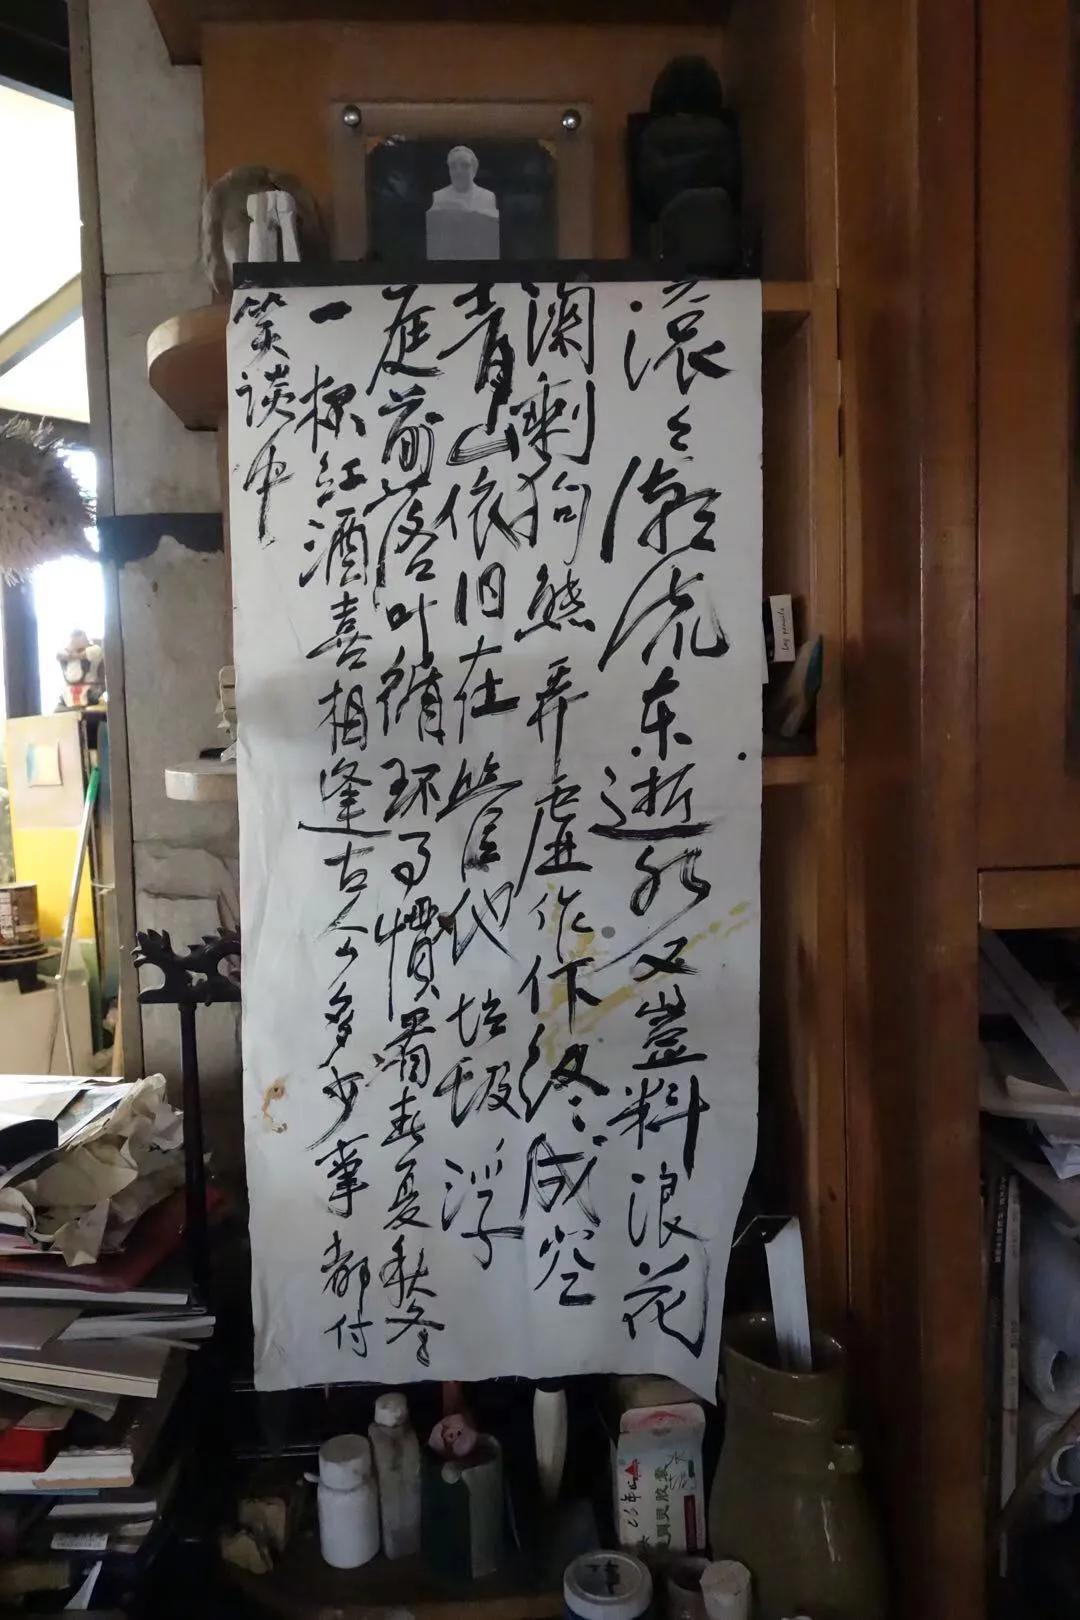 滚々潮流东逝水又岂料浪花
阑剩狗熊弄虚作假终成空
青山依旧在监管他垃圾浮
庭前落叶循环了惯看春夏秋冬
一杯红酒喜相逢古今多少事都付
笑谈中